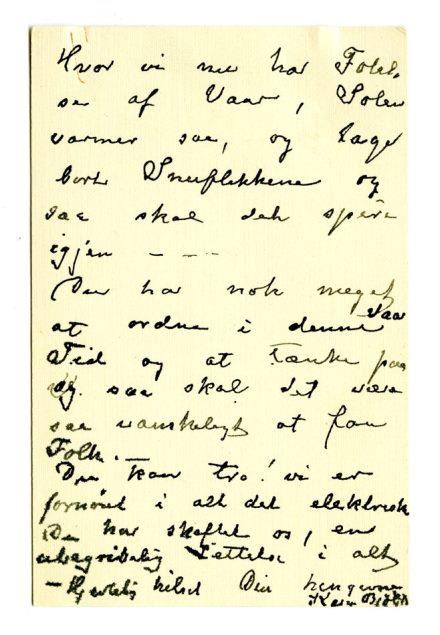 Hvor vi nu har Følel-
se af Vaar, Solen
varmer saa, og tage
bort Sneflekkene og
saa skal deh spire
igjen - - - -
Du har nok meget
Vaar
at ordne i denne
Tid og at tænke paa
og saa skal det være
saa vanskeligt at faa
Folk.
Du kan tro! vi er
fornöiet i alt det elektrisk
Du har skaffet os, en
ubegribelig Lettelse i alt
- Hjertelig hilset Din hengivne